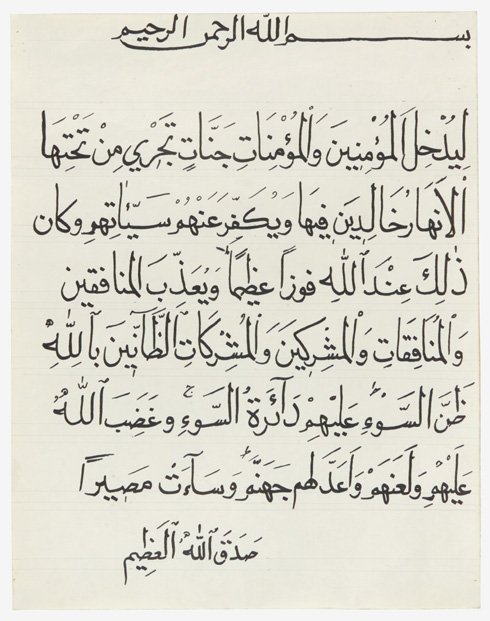 بسم الله الرحمن الرحيم
لِيُدْخِلَ الْمُؤْمِنِينَ وَالْمُؤْمِنَاتِ جَنَّاتٍ تَجْرِي مِنْ تَحْتِهَا
ٱلْأَنْهَارُ خَالِدِينَ فِيهَا وَيُكَفِّرَ عَنْهُمْ سَيِّئَاتِهِمْ وَكَانَ
ذَٰلِكَ عِنْدَ ٱللَّهِ فَوْزًا عَظِيمًا وَيُعَذِّبَ الْمُنَافِقِينَ
وَٱلْمُنَافِقَاتِ وَٱلْمُشْرِكِينَ وَٱلْمُشْرِكَاتِ ٱلظَّآنِّينَ بِٱللَّهِ
ظَنَّ السَّوْءِ عَلَيْهِمْ دَآئِرَةُ السَّوْءِ وَغَضِبَ ٱللَّهُ
عَلَيْهِمْ وَلَعَنَهُمْ وَأَعَدَّ لَهُمْ جَهَنَّمَ وَسَآءَتْ مَصِيرًا
صَدَقَ ٱللَّهُ ٱلْعَظِيم